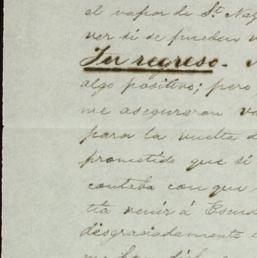 el vapor de Sn. Naz
ver si se pueden
Su regreso.
algo positivo; pero
me aseguraron va
para la vuelta d
prometido que si
contaba con que
tta venir á Escud
desgraciadamente